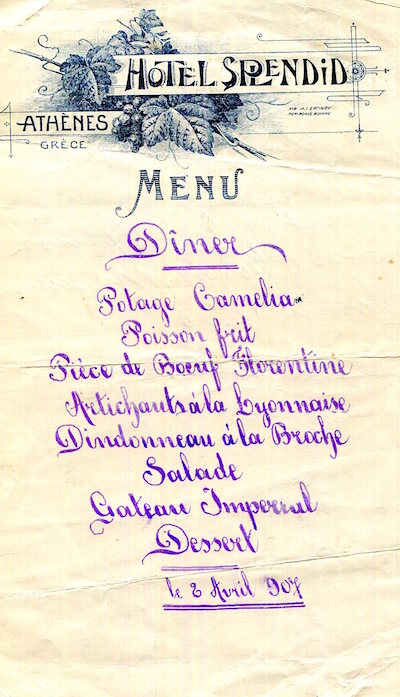 HOTEL SPLENDID
ATHÈNES
GRÈCE
MENU
Dîner
Potage Camelia
Poisson frit
Pièce de Boeuf Florentine
Artichauts à la Lyonnaise
Dindonneau à la Broche
Salade
Gateau Imperial
Dessert
le 2 Avril 907